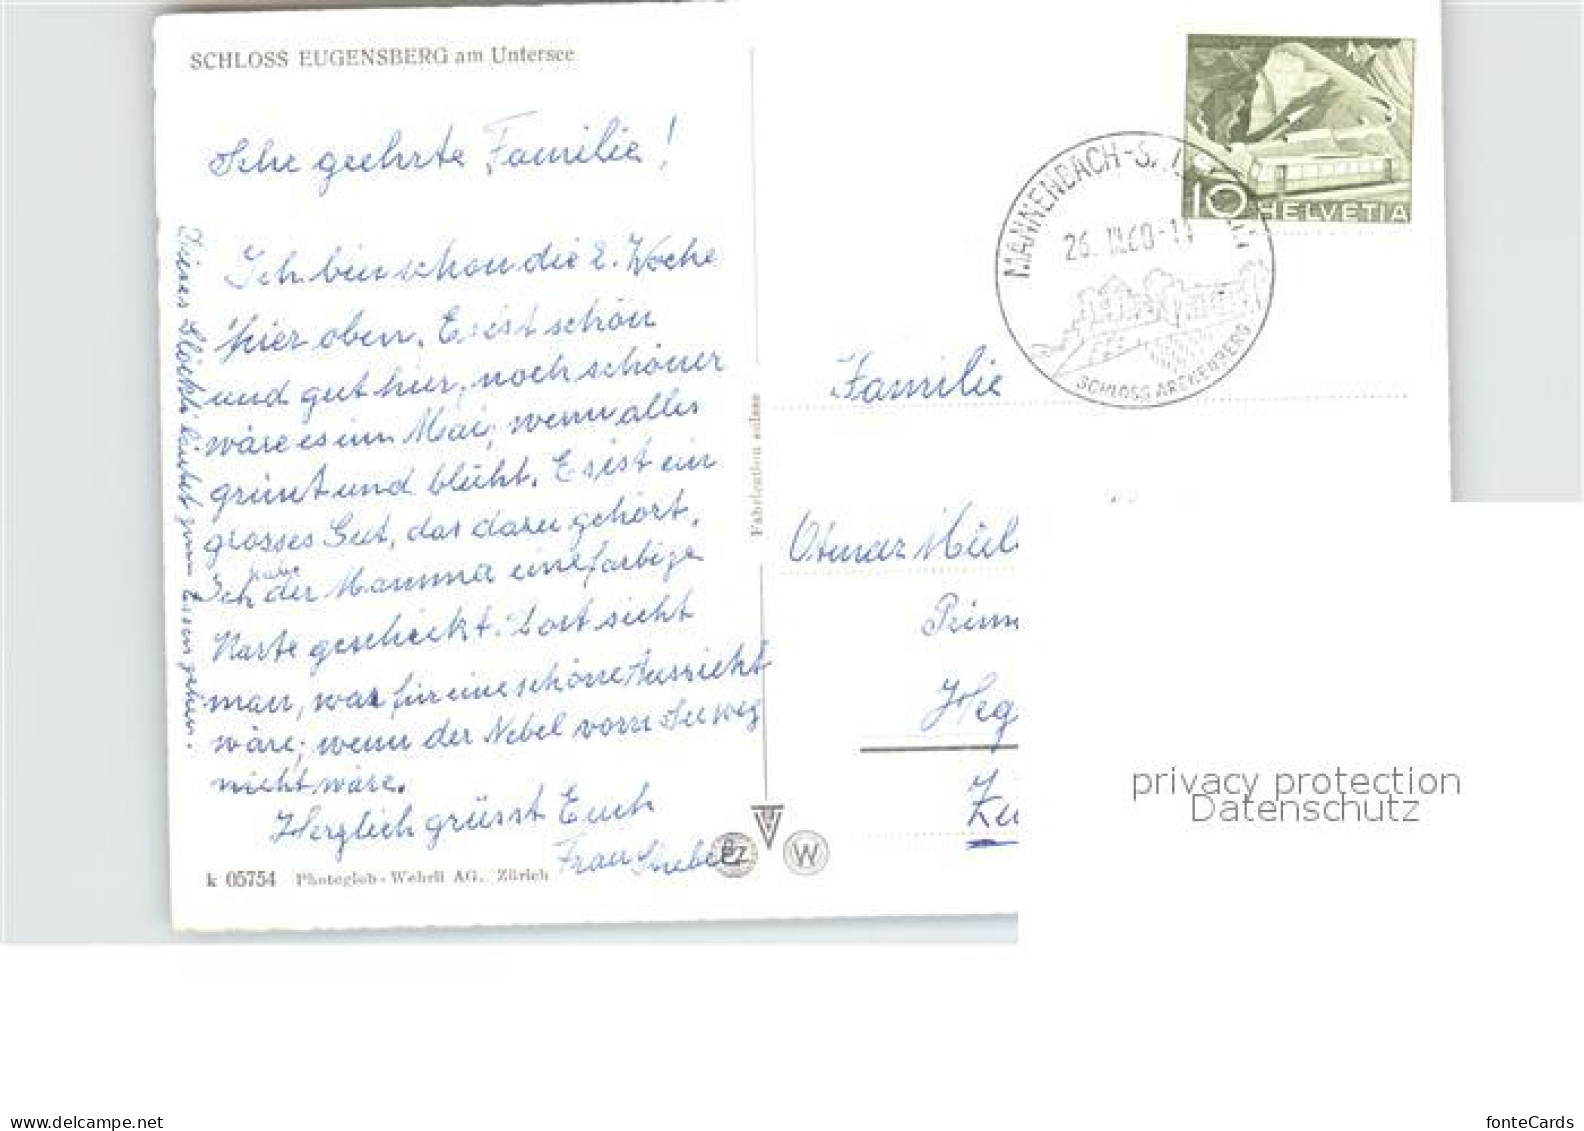 SCHLOSS EUGENSBERG am Untersee
Sehr geehrte Familie!
Ich bin schon die 2. Woche
hier oben. Es ist schön
und gut hier, noch schöner
wäre es im Mai, wenn alles
grünt und blüht. Es ist ein
grosses Gut, das dazu gehört.
Ich habe der Mamma eine farbige
Karte geschickt. Dort sieht
man, was für eine schöne Aussicht
wäre, wenn der Nebel vom See weg
nicht wäre.
Herzlich grüsst Euch
Frau
Dieses Glöckli läutet zum Essen gehen.
k 05754 Photoglob-Wehrli AG. Zürich
Fabrication suisse
PZ
W
10 HELVETIA
MANNENBACH-
26. -11
SCHLOSS ARENENBERG
Familie
Otmar Mül
Heg
Zü
privacy protection
Datenschutz
www.delcampe.net
fonteCards